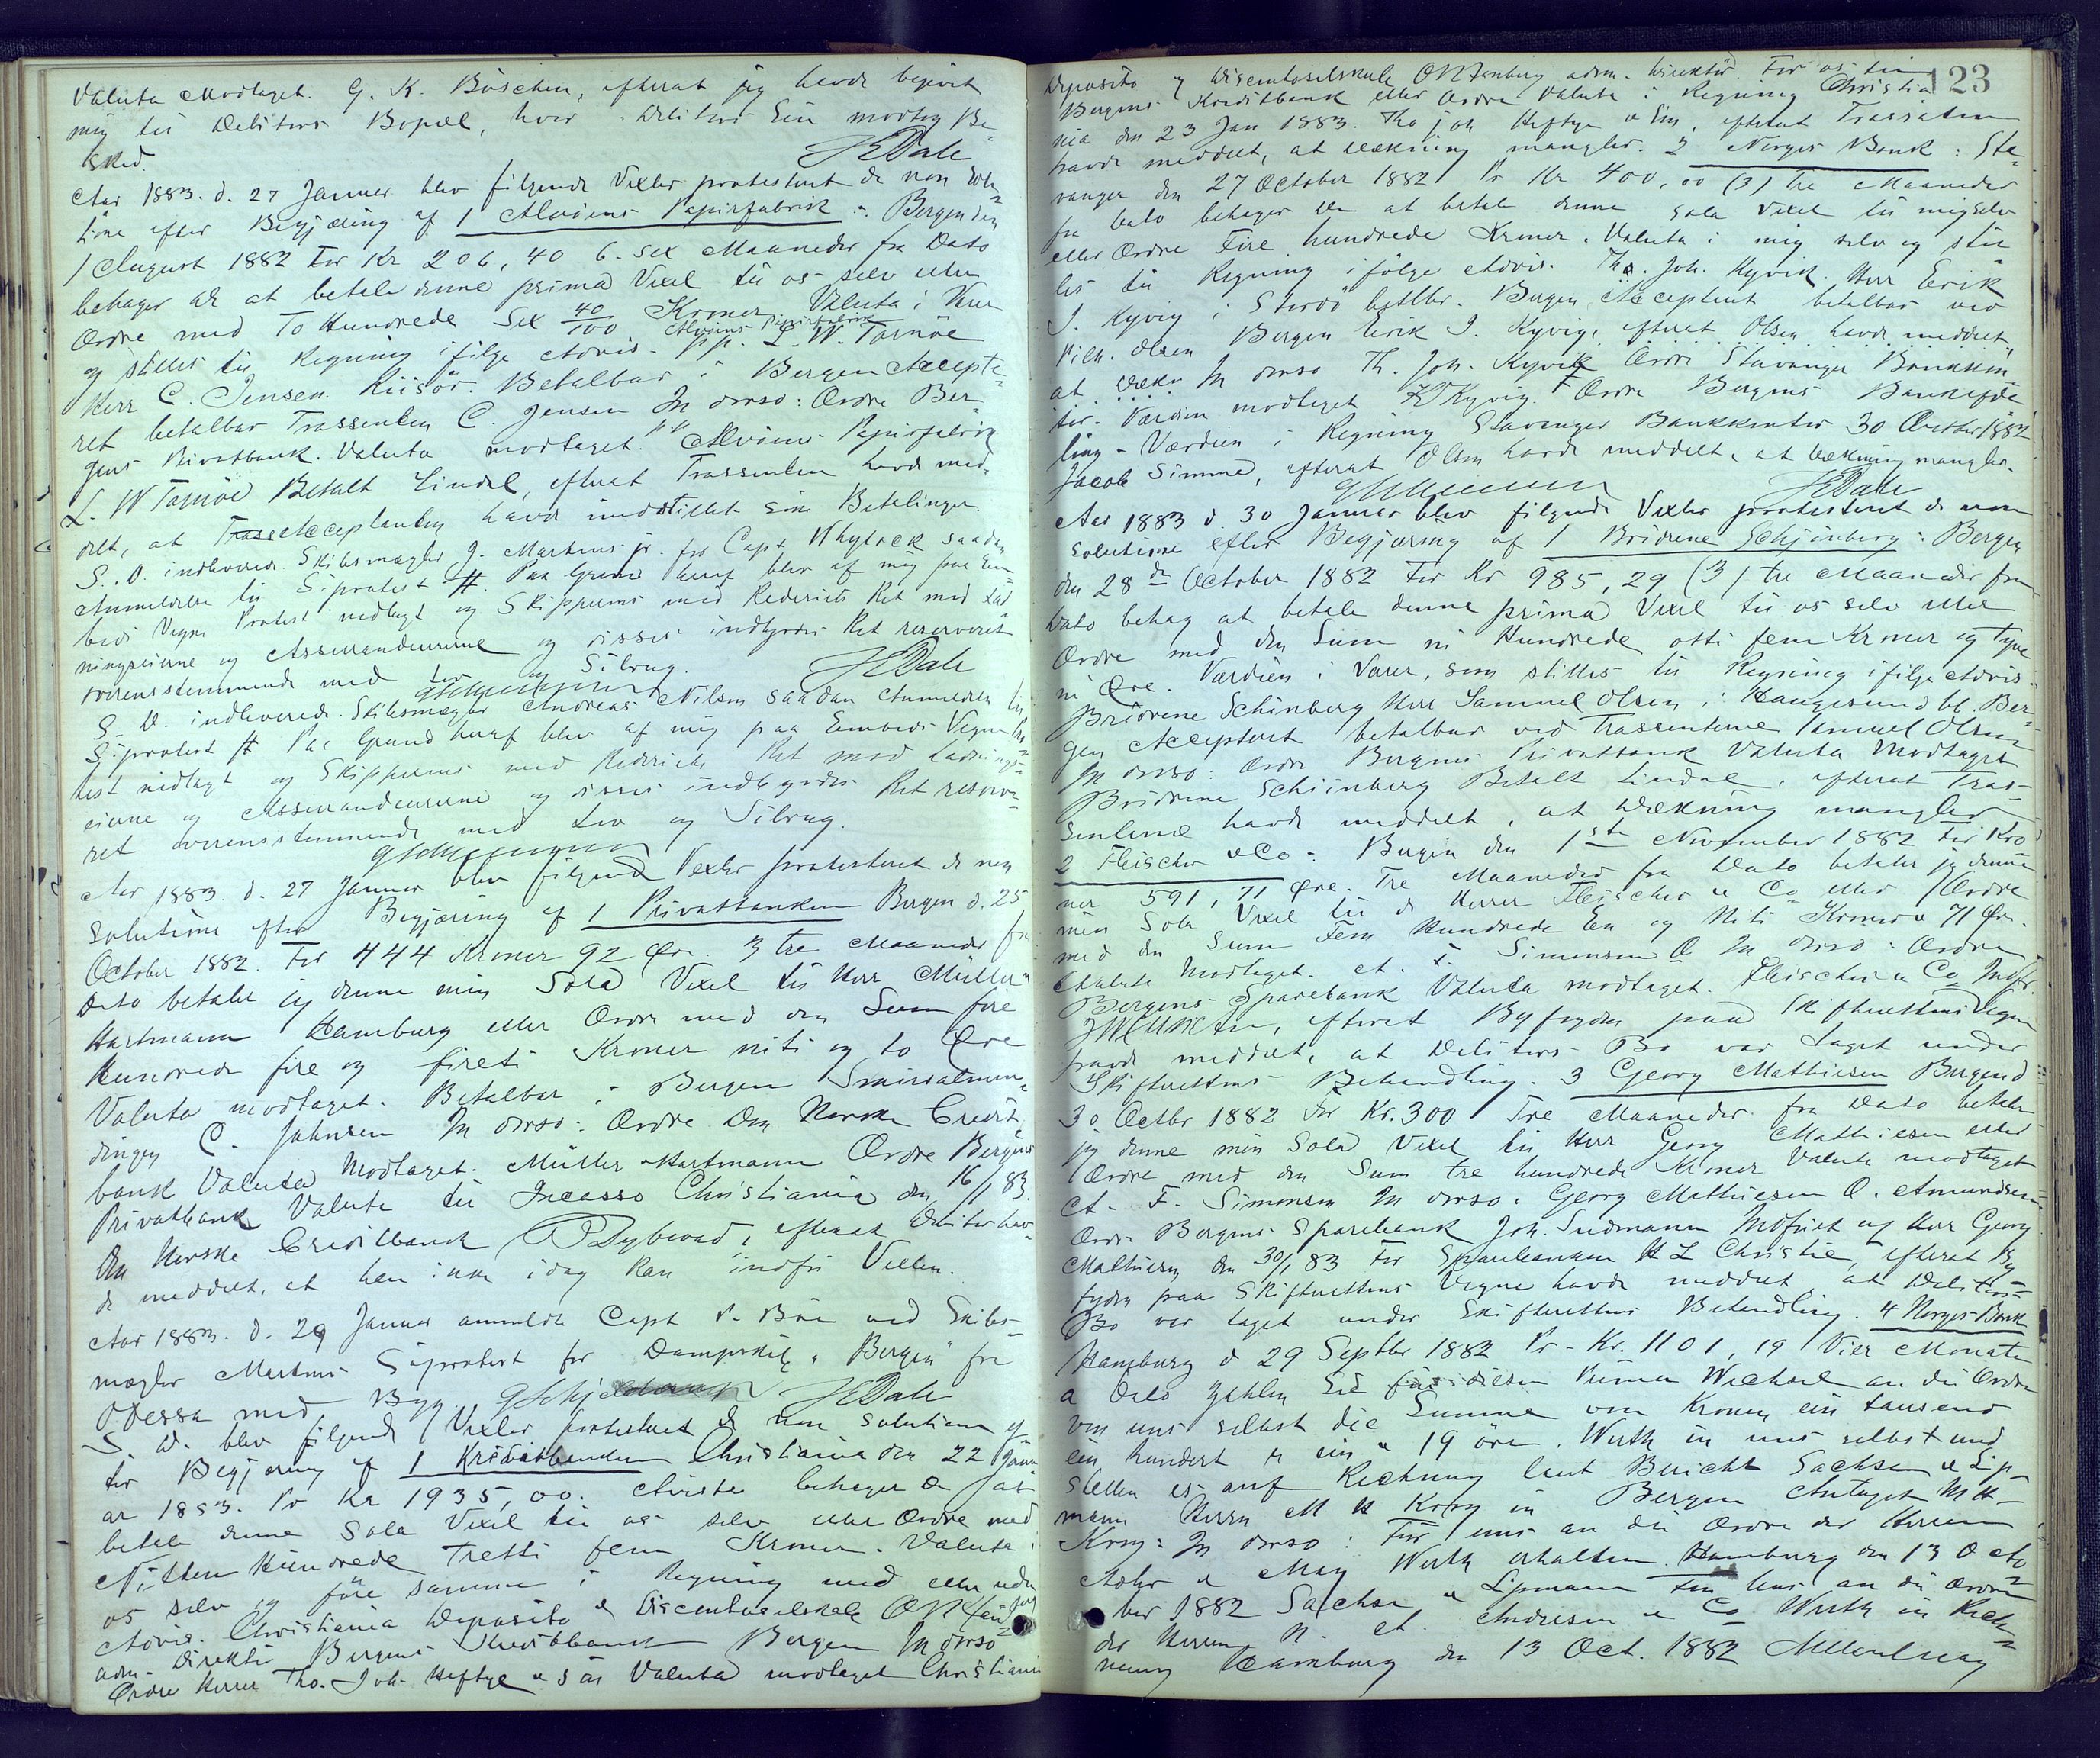 Valuta Modtaget. G. K. Büschen, efterat jeg havde begivet
mig til Debitors Bopæl, hvor Debitors Eie modtog Be-
sked. JEDale
Aar 1883. d. 27 Januar blev følgende Vexler protesteret de non Solu-
tione efter Begjæring af 1 Alvöens Papirfabrik : Bergen den
1 August 1882 For Kr 206,40 6. sex Maaneder fra Dato
behager De at betale denne prima Vexel til os selv eller
Ordre med To Hundrede Sex 40/100 Kroner Valuta i Varer
og stilles til Regning ifölge Advis. pp. Alvöens Papirfabrik L. W. Tornöe
Herr C. Jensen Riisör. Betalbar i Bergen Accepte-
ret betalbar Trassenten C. Jensen In dorso: Ordre Ber-
gens Privatbank. Valuta modtaget. pp Alvöens Papirfabrik
L. W Tornöe Betalt Lindal, efterat Trassenten havde med-
delt, at Trass Acceptanten havde indstillet sine Betalinger.
S. D. indleverede Skibsmægler J. Martens jr. for Capt Whylock saadan
Anmeldelse til Söprotest #. Paa Grund heraf blev af mig paa Em-
beds Vegne Protest nedlagt og Skipperens med Rederiets Ret mod Lad-
ningseierne og Assurandeurerne og disses indbyrdes Ret reserveret
overensstemmende med Lov og Söbrug. JEDale
S. D. indleverede Skibsmægler Andreas Nilsen saadan Anmeldelse til
Söprotest # Paa Grund heraf blev af mig paa Embeds Vegne Pro-
test nedlagt og Skipperens med Rederiets Ret mod Ladnings-
eierne og Assurandeurerne og disses indbyrdes Ret reserve-
ret overensstemmende med Lov og Söbrug.
Aar 1883. d. 27 Januar blev følgende Vexler protesteret de non
Solutione efter Begjæring af 1 Privatbanken Bergen d. 25
October 1882. For 444 Kroner 92 Öre 3 tre Maaneder fra
Dato betaler jeg denne min Sola Vexel til Herr Müller
Hartmann Hamburg eller Ordre med den Sum fire
Hundrede fire og firti Kroner niti og to Öre
Valuta modtaget. Betalbar i Bergen Smörsalmen-
dingen C. Johnsen In dorso: Ordre Den Norske Credit-
bank Valuta Modtaget. Müller Hartmann Ordre Bergens
Privatbank Valuta til Incasso Christiania den 16/1 83.
Den Norske Creditbank Dybwad, efterat Debitor hav-
de meddelt, at han ikke idag kan indfri Vexlen.
Aar 1883. d. 29 Januar anmeldte Capt P. Böe ved Skibs-
mægler Martens Söprotest for Dampskib "Bergen" fra
Odessa med Byg. GSchjelderup JEDale
S. D. blev følgende Vexler protesteret de non solutione ef-
ter Begjæring af 1 Kreditbanken Christiania den 22 Janu-
ar 1883. Pr Kr 1935,00. Avista behager De at
betale denne Sola Vexel til os selv eller Ordre med
Nitten Hundrede Tretti fem Kroner. Valuta i
os selv og före samme i Regning med eller uden
Advis. Christiania Deposito & Discontoselskab
adm. Direktör Bergens Kreditbank Bergen In dorso
Ordre Herrer Tho. Joh. Heftye & Sön Valuta modtaget Christiania
123
Deposito og Discontoselskab adm. Direktör. For os til
Bergens Kreditbank eller Ordre Valuta i Regning Christia-
nia den 23 Jan 1883. Tho Joh Heftye & Sön, efterat Trassaten
havde meddelt, at Dækning mangler. 2 Norges Bank : Sta-
vanger den 27 October 1882 Pr Kr 400,00 (3) Tre Maaneder
fra Dato behager De at betale denne Sola Vexel til mig selv
eller Ordre Fire hundrede Kroner. Valuta i mig selv og stil-
les til Regning ifölge Advis. Th. Joh. Kyvik. Herr Erik
J. Kyvig i Stordö betlbr. Bergen Accepteret betalbar ved
Vilh. Olsen Bergen Erik J. Kyvig, efterat Olsen havde meddelt,
at Dækn In dorso Th. Joh. Kyvik Ordre Stavanger Bankkon-
tor. Værdien modtaget Kyvig. Ordre Bergens Bankafde-
ling. Værdien i Regning Stavanger Bankkontor 30 October 1882
Jacob Simme, efterat Olsen havde meddelt, at Dækning mangler.
JEDale
Aar 1883 d. 30 Januar blev følgende Vexler protesteret de non
Solutione efter Begjæring af 1 Brödrene Schjönberg : Bergen
den 28de October 1882 For Kr 985,29 (3) tre Maaneder fra
Dato behag at betale denne prima Vexel til os selv eller
Ordre med den Sum ni Hundrede otti fem Kroner og tyve
ni Öre. Værdien i Varer, som stilles til Regning ifölge Advis.
Brödrene Schönberg Herr Samuel Olsen i Haugesund bl. Ber-
gen Accepteret betalbar ved Trassenterne Samuel Olsen
In dorso: Ordre Bergens Privatbank Valuta Modtaget
Brödrene Schönberg Betalt Lindal, efterat Tras-
senterne havde meddelt, at Dækning mangler
2 Fleischer & Co : Bergen den 1ste November 1882 For Kro
ner 591,71 Öre. Tre Maaneder fra Dato betaler jeg denne
min Sola Vexel til de Herrer Fleischer & Co eller Ordre
med den Sum Fem Hundrede En og Niti Kroner & 71 Öre
Valuta Modtaget. A. F. Simonsen In dorso : Ordre
Bergens Sparebank Valuta modtaget. Fleischer & Co Indfr.
efterat Byfogden paa Skifterettens Vegne
havde meddelt, at Debitors Bo var taget under
Skifterettens Behandling. 3 Georg Mathiesen Bergen d
30. Octbr 1882 For Kr. 300 Tre Maaneder fra Dato betaler
jeg denne min Sola Vexel til Herr Georg Mathiesen eller
Ordre med den Sum tre hundrede Kroner Valuta modtaget
A. F. Simonsen In dorso : Georg Mathiesen O. Amundsen
Ordre Bergens Sparebank Joh. Sudmann Indfriet af Herr Georg
Mathiesen den 30/1 83 For Sparebanken H L Christie, efterat By-
fogden paa Skifterettens Vegne havde meddelt at Debitors
Bo var taget under Skifterettens Behandling. 4 Norges Bank
Hamburg d 29 Septbr 1882 Pr. Kr. 1101,19 Vier Monate
a Dato zahlen Sie für diesen Prima Wechsel an die Ordre
von uns selbst die Summe von Kronen ein tausend
ein hundert & ein & 19 öre. Werth in uns selbst und
stellen es auf Rechnung laut Bericht Sachse & Lip-
mann Herrn M H Krog in Bergen Antaget M H
Krog : In dorso : Für uns an die Ordre der Herren
& May Werth erhalten. Hamburg den 13 Octo-
ber 1882 Sachse & Lipmann Für uns an die Ordre
der Herren N. A. Andresen & Co Werth in Rech-
nung Hamburg den 13 Oct. 1882